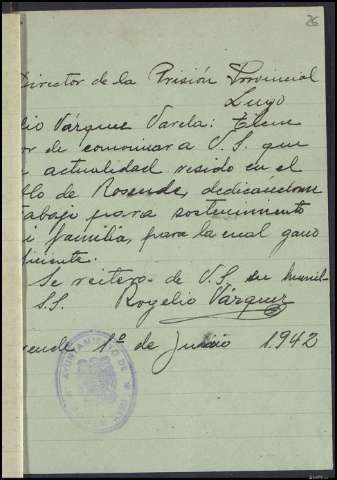 26
Director de la Prisión Provincial
Lugo
lio Vázquez Varela: Tiene
or de comunicar a V.S. que
actualidad resido en el
llo de Rosende, dedicandome
trabajo para sostenimiento
i familia, para la cual gano
ficiente.
Se reitera de V.S. su humil-
S.S. Rogelio Vázquez
sende 1º de Junio 1942
AYUNTAMIENTO DE